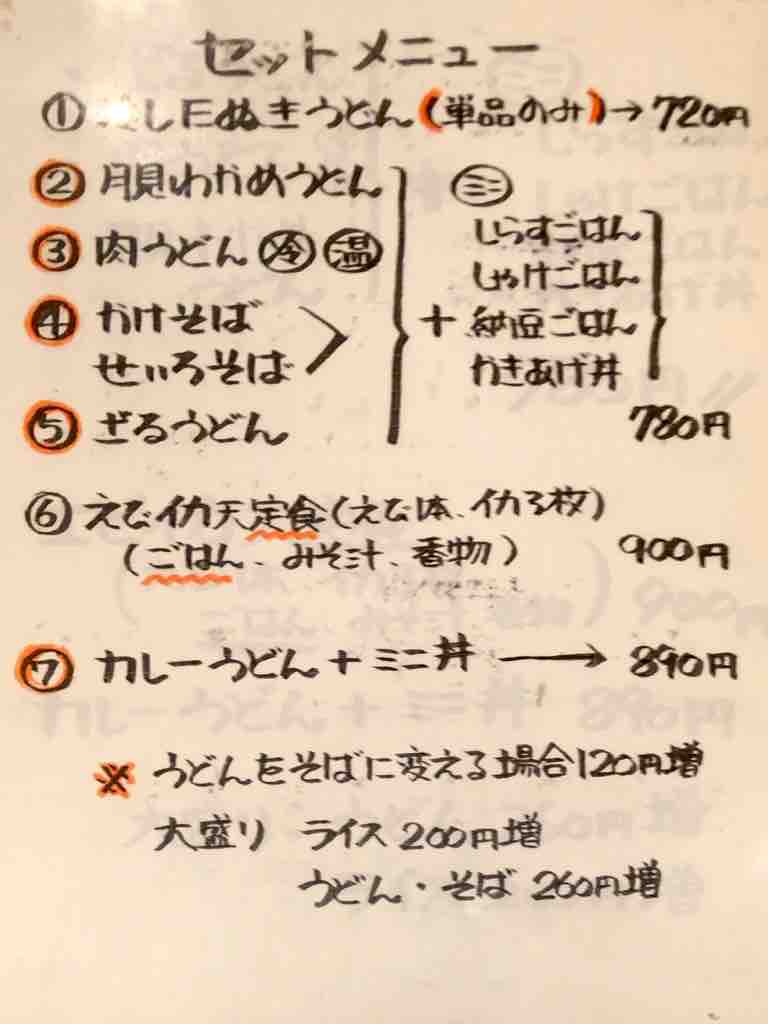 セットメニュー
① 冷したぬきうどん(単品のみ)→720円
② 月見わかめうどん
③ 肉うどん 冷 温
④ かけそば
せいろそば
⑤ ざるうどん
ミニ
しらすごはん
しゃけごはん
+ 納豆ごはん
かきあげ丼
780円
⑥ えびイカ天定食(えび1本、イカ3枚)
(ごはん、みそ汁、香物) 900円
⑦ カレーうどん+ミニ丼 → 890円
※ うどんをそばに変える場合120円増
大盛り ライス 200円増
うどん・そば 260円増